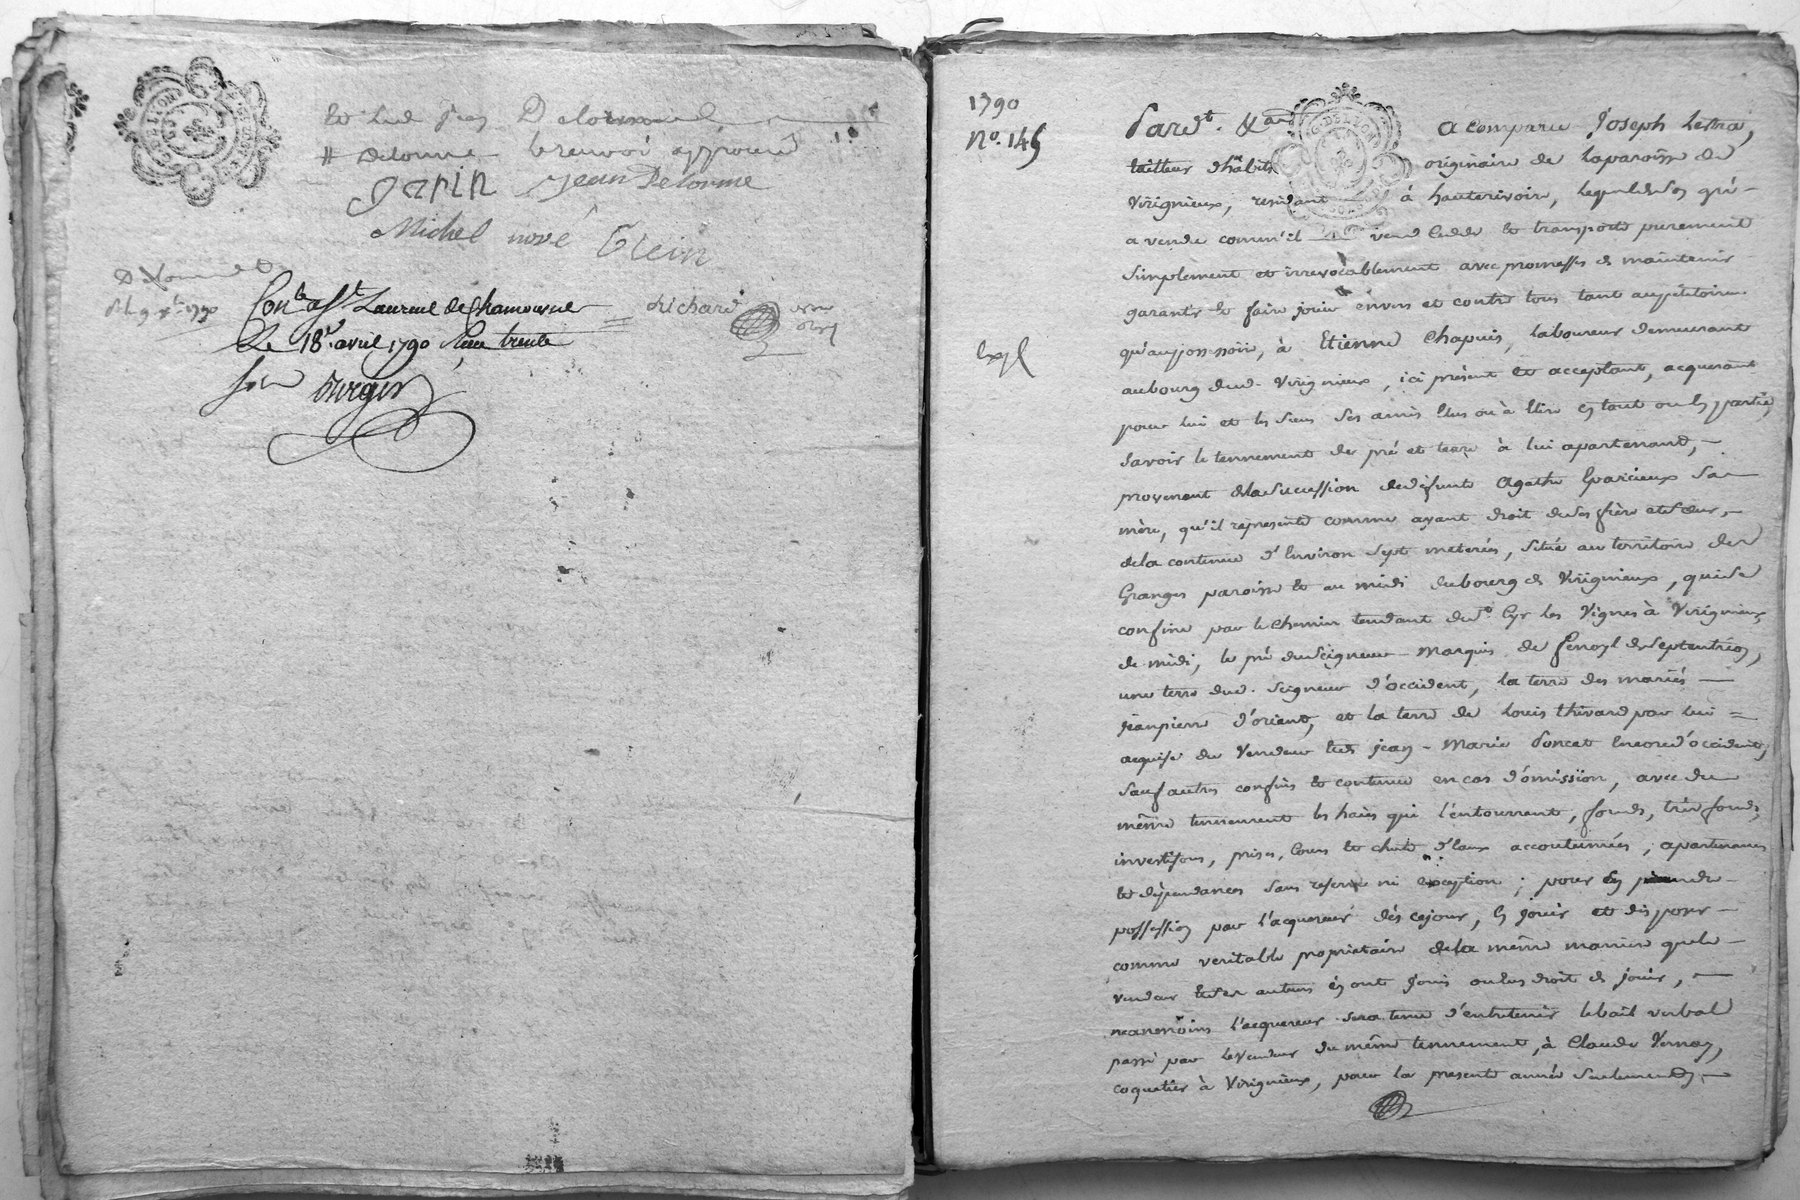 Delorme
# Delorme le renvoi approuvé
Jean Delorme
Michel nové
1790
Richard
Le 18 avril 1790 Reçu trente
1790
No. 145
Pard.t &a a comparu Joseph Lestra,
tailleur d'habits originaire de la paroisse de
Virignieux, residant à hauterivoire, lequel de son gré
a vendu comm'il vend cede et transporte purement
simplement et irrevocablement avec promesses de maintenir
garantir et faire jouir envers et contre tous tant au petitoire
qu'au possessoire, à Etienne Chapuis, laboureur demeurant
au bourg dud. Virignieux, ici présent et acceptant, acquerant
pour lui et les siens ses amis élus ou à élire en tout ou en partie
savoir le tennement de pré et terre à lui apartenant,
provenant de la succession de defunte Agathe Eparcieux sa
mère, qu'il represente comme ayant droit de ses frère et sœur,
de la contenue d'environ sept meterées, situé au territoire des
Granges paroisse et au midi du bourg de Virignieux, qui se
confine par le chemin tendant de St Cyr les Vignes à Virignieux
de midi, le pré du Seigneur Marquis de fenoyl de septentrion,
une terre dud. Seigneur d'occident, la terre des mariés
jeanpierre d'orient, et la terre de Louis thivard par lui
acquise du Vendeur et de jean-Marie Poncet encore d'occident,
sauf autres confins et contenue en cas d'omission, avec du
même tennement les haies qui l'entourrent, fonds, très fonds,
investisons, prises, cours et chute d'eaux accoutumées, apartenances
et dépendances sans reserve ni exception; pour en prendre
possession par l'acquereur dès ce jour, en jouir et disposer
comme veritable propriétaire de la même manière que le
vendeur et ses auteurs en ont joui ou eu droit de jouir,
neanmoins l'acquereur sera tenu d'entretenir le bail verbal
passé par le vendeur du même tennement, à Claude Vernay,
coquetier à Virignieux, pour la presente année seulement,